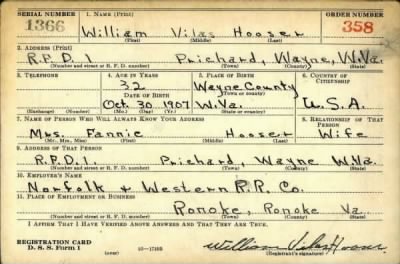 SERIAL NUMBER 1. NAME (Print) ORDER NUMBER
1366 William Vilas Hooser 358
(First) (Middle) (Last)
2. ADDRESS (Print)
R.F.D. 1 Prichard, Wayne, W.Va.
(Number and street or R. F. D. number) (Town) (County) (State)
3. TELEPHONE 4. AGE IN YEARS 5. PLACE OF BIRTH 6. COUNTRY OF CITIZENSHIP
32 Wayne County
DATE OF BIRTH (Town or county)
Oct. 30 1907 W.Va. U.S.A.
(Exchange) (Number) (Mo.) (Day) (Yr.) (State or country)
7. NAME OF PERSON WHO WILL ALWAYS KNOW YOUR ADDRESS 8. RELATIONSHIP OF THAT PERSON
Mrs. Fannie Hooser Wife
(Mr., Mrs., Miss) (First) (Middle) (Last)
9. ADDRESS OF THAT PERSON
R.F.D. 1. Prichard, Wayne W.Va.
(Number and street or R. F. D. number) (Town) (County) (State)
10. EMPLOYER'S NAME
Norfolk + Western R.R. Co.
11. PLACE OF EMPLOYMENT OR BUSINESS
Ronoke, Ronoke Va.
(Number and street or R. F. D. number) (Town) (County) (State)
I AFFIRM THAT I HAVE VERIFIED ABOVE ANSWERS AND THAT THEY ARE TRUE.
REGISTRATION CARD William Vilas Hooser
D. S. S. Form 1 (over) (Registrant's signature)